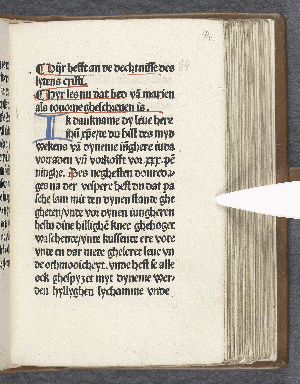 Hijr hefft an de dechtnisse des
lydens cristi.
Hyr les nu dat bed vā marien
als vorome ghescreuen is.
Ik dankname dy leue here
ihū xp̄e
wekens vā dyneme inghere iuda
vorraden vn̄ vorkofft vor xxx pē
ninghe. Des neghesten donredag
ges na der vespere hestu dat pa
sche lam mit den dynen
gheten/vnde vor dynen iungheren
hestu dine hillighē knee gheboget
waschende/vnde kussende ere vote
vnde en dar mere ghelerer leue vn̄
de othmodicheyt. vnde hefst se alle
ock ghespyzet myt dyneme wer
den hyllyghen lychamme vnde